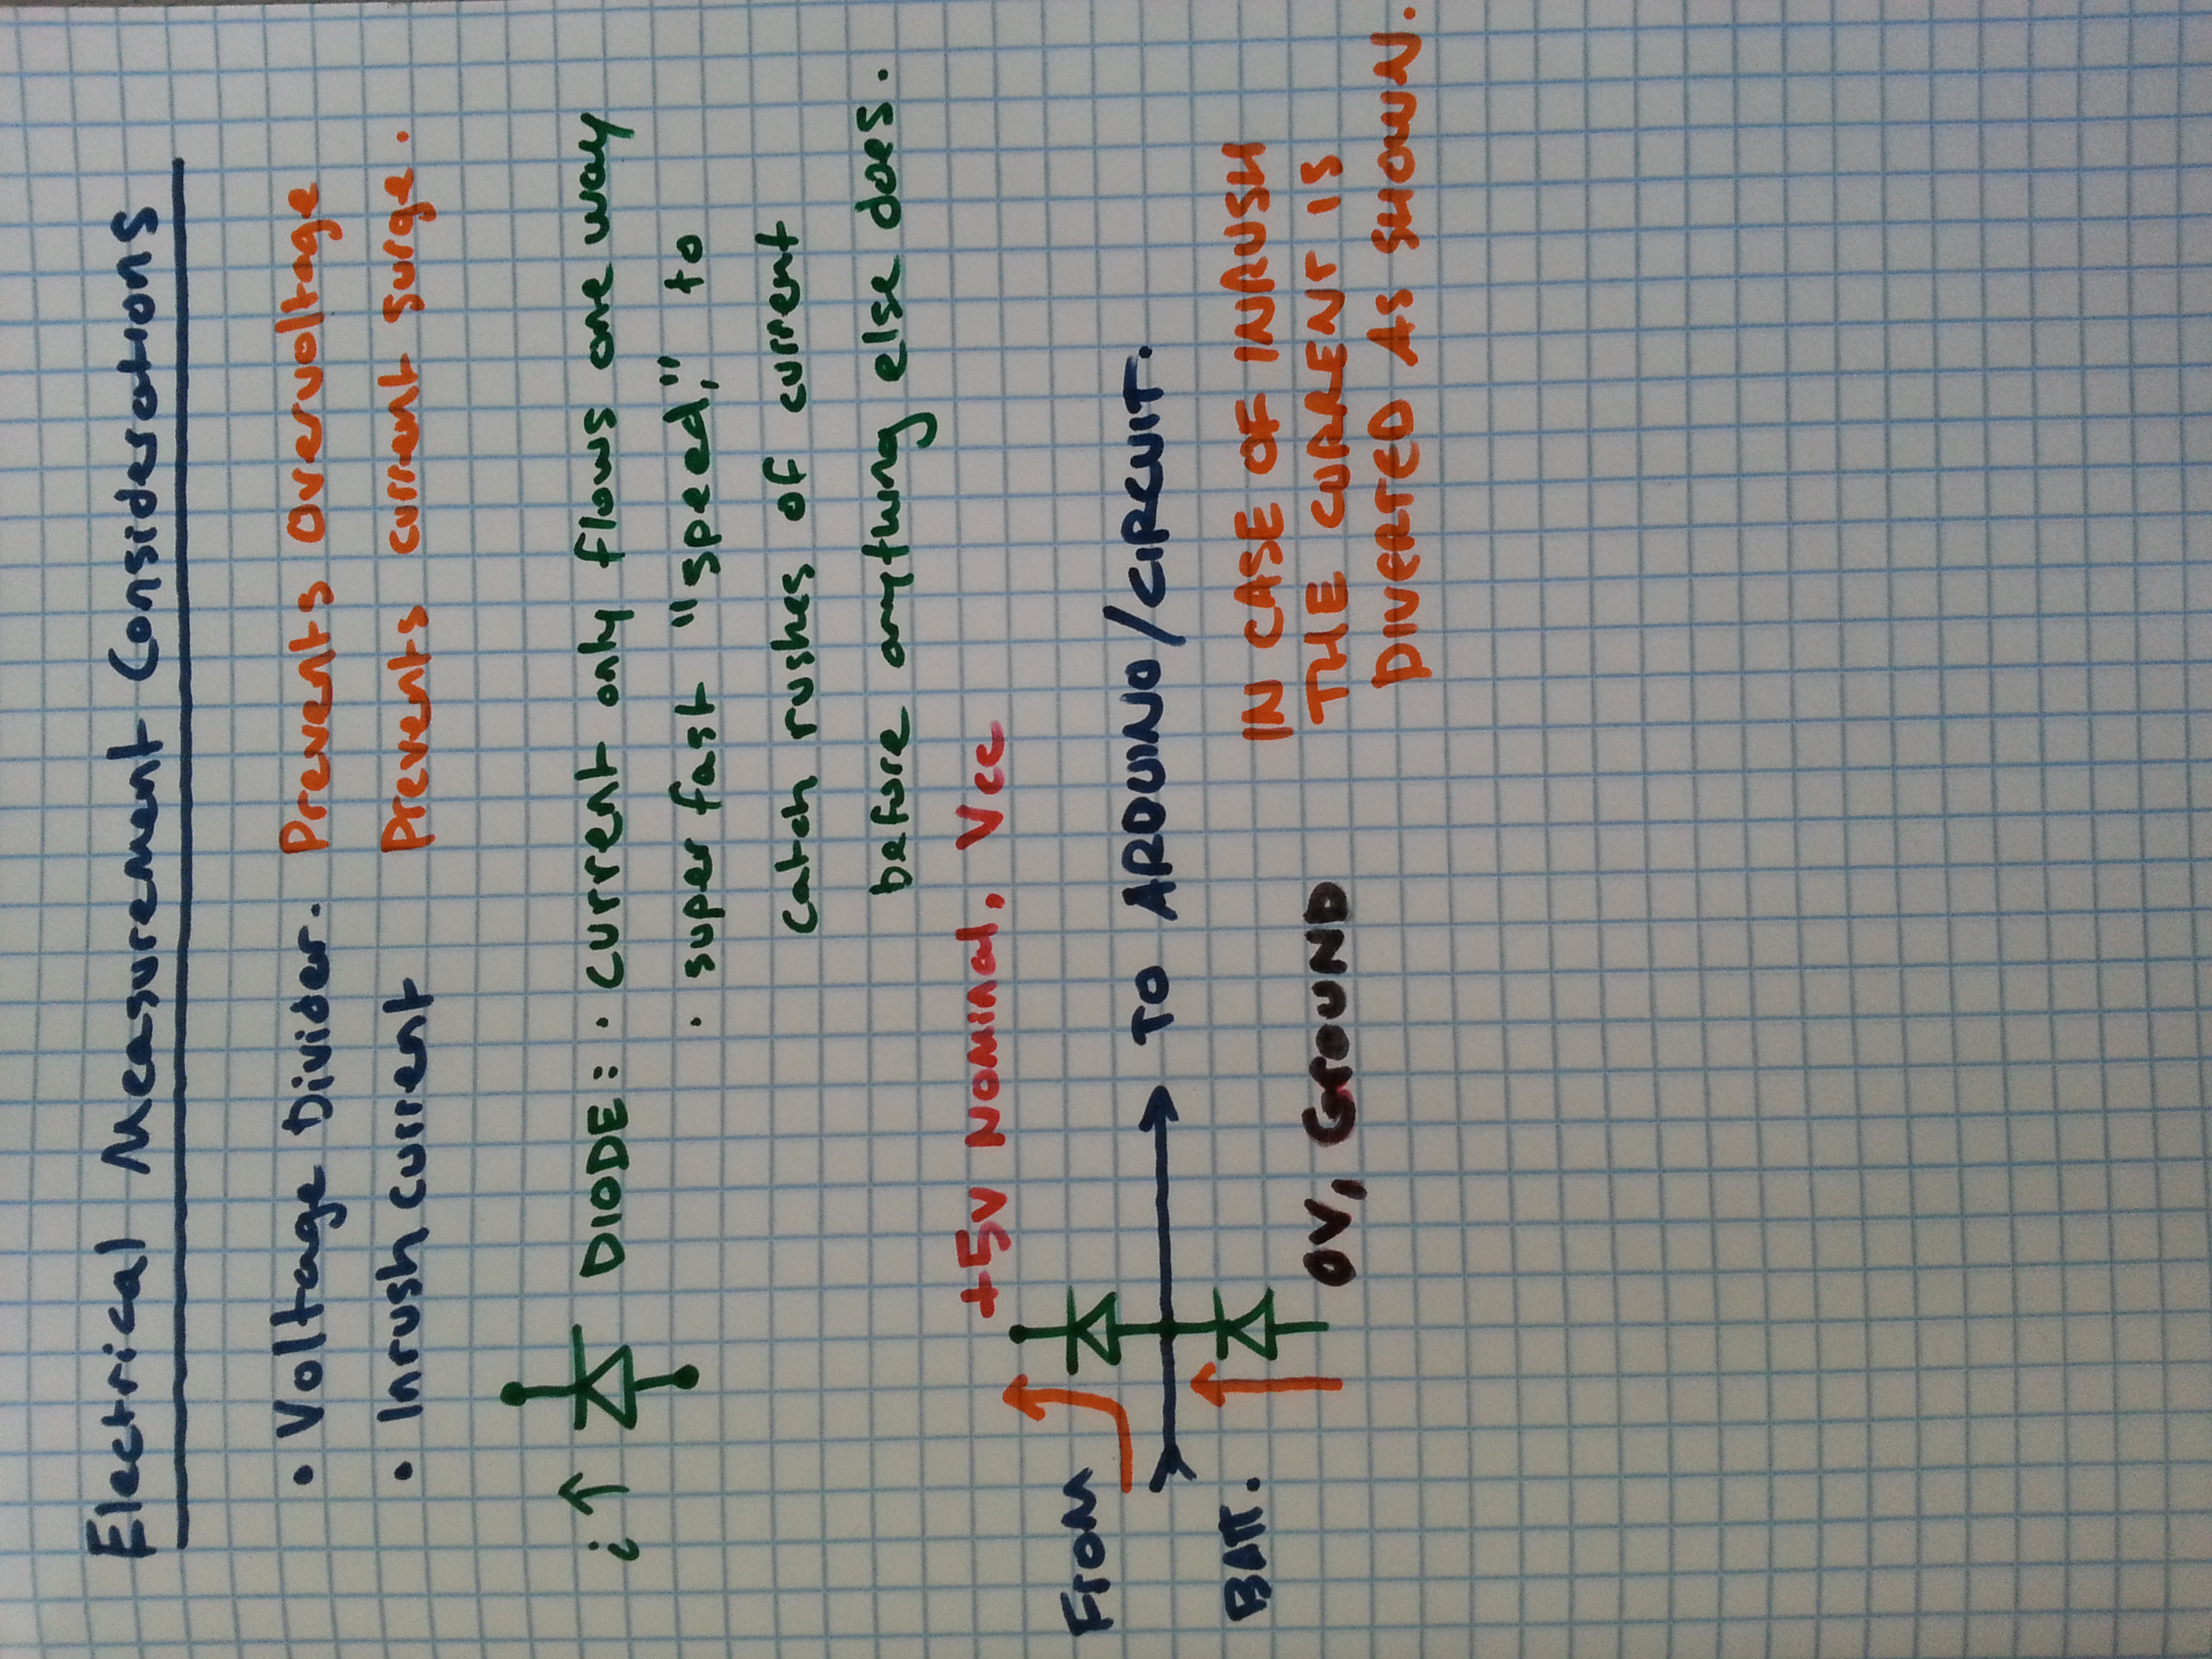 Electrical Measurement Considerations
• Voltage Divider. Prevents Overvoltage
• Inrush current Prevents current surge.
i ↑ DIODE: · current only flows one way
· super fast "speed," to
catch rushes of current
before anything else does.
+5v Nominal, Vcc
From
TO ARDUINO/CIRCUIT.
BATT.
0V, GROUND
IN CASE OF INRUSH
THE CURRENT IS
DIVERTED AS SHOWN.